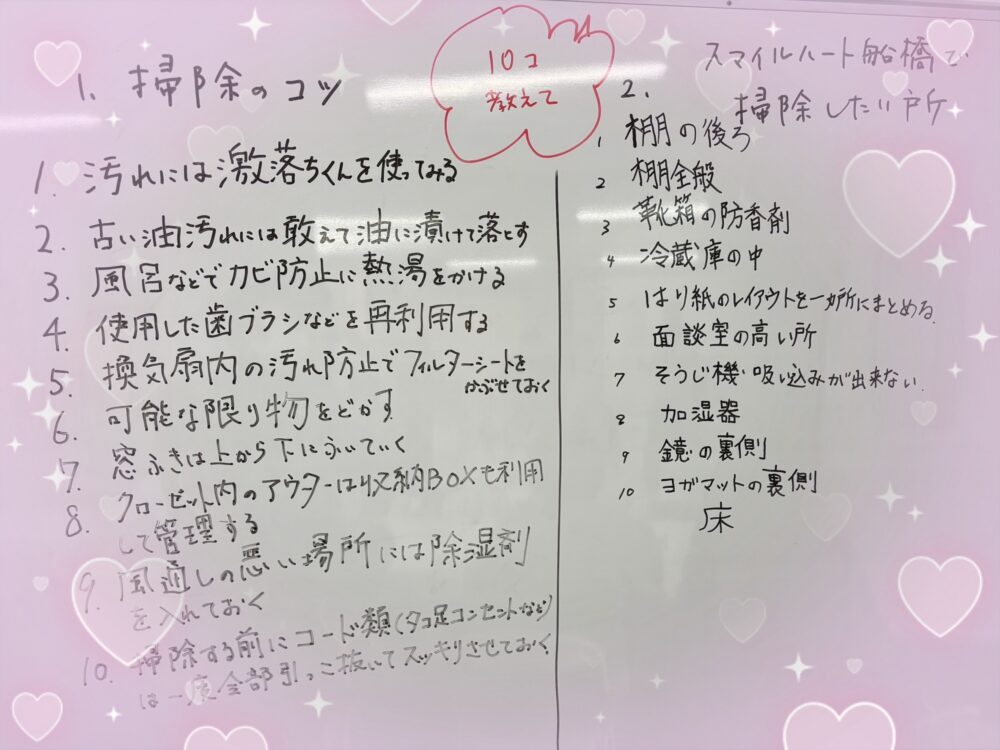 1. 掃除のコツ
10コ
教えて
1. 汚れには激落ちくんを使ってみる
2. 古い油汚れには敢えて油に漬けて落とす
3. 風呂などでカビ防止に熱湯をかける
4. 使用した歯ブラシなどを再利用する
5. 換気扇内の汚れ防止でフィルターシートを
かぶせておく
6. 可能な限り物をどかす
7. 窓ふきは上から下にふいていく
8. クローゼット内のアウターは収納BOXも利用
して管理する
9. 風通しの悪い場所には除湿剤
を入れておく
10. 掃除する前にコード類(タコ足コンセントなど)
は一度全部引っこ抜いてスッキリさせておく
スマイルハート船橋で
2. 掃除したい所
1 棚の後ろ
2 棚全般
3 靴箱の防香剤
4 冷蔵庫の中
5 はり紙のレイアウトを一カ所にまとめる。
6 面談室の高い所
7 そうじ機 吸い込みが出来ない.
8 加湿器
9 鏡の裏側
10 ヨガマットの裏側
床